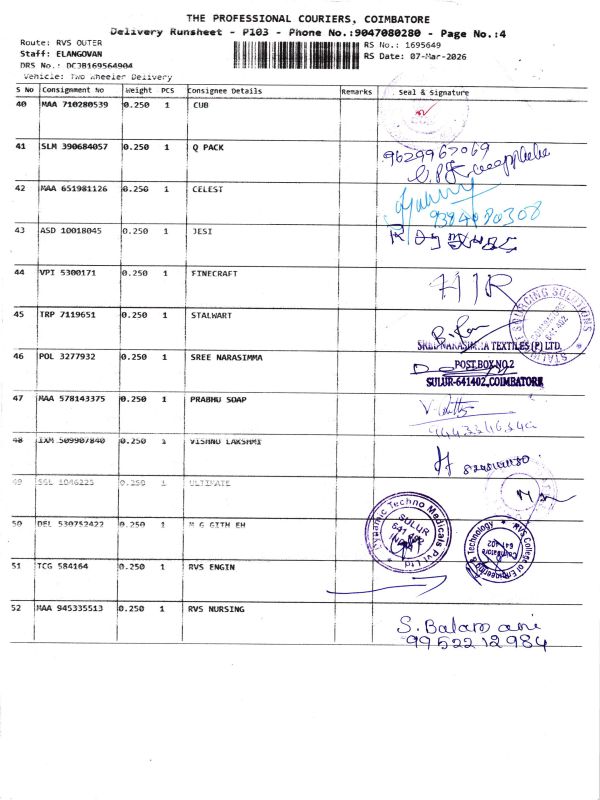 THE PROFESSIONAL COURIERS, COIMBATORE
Delivery Runsheet - P103 - Phone No.:9047080280 - Page No.:4
Route: RVS OUTER
RS No.: 1695649
Staff: ELANGOVAN
RS Date: 07-Mar-2026
DRS No.: DCJB169564904
Vehicle: Two Wheeler Delivery
S No Consignment No Weight PCS Consignee Details Remarks Seal & Signature
40 MAA 710280539 0.250 1 CUB
41 SLM 390684057 0.250 1 Q PACK
9629967069
42 MAA 651981126 0.250 1 CELEST
9384080308
43 ASD 10018045 0.250 1 JESI
44 VPI 5300171 0.250 1 FINECRAFT
HJR
45 TRP 7119651 0.250 1 STALWART
SOURCING SOLUTIONS
SREE NARASIMMA TEXTILES (P) LTD.
46 POL 3277932 0.250 1 SREE NARASIMMA
POST.BOX.NO.2
SULUR-641402,COIMBATORE
47 MAA 578143375 0.250 1 PRABHU SOAP
48 IXM 509907840 0.250 1 VISHNU LAKSHMI
49 SGL 1046225 0.250 1 ULTIMATE
50 DEL 530752422 0.250 1 M G GITH EH
Dynamic Techno Medicals Pvt Ltd
SULUR
641 402
INDIA
RVS College of Engineering & Technology
Coimbatore
641 402
51 TCG 584164 0.250 1 RVS ENGIN
52 MAA 945335513 0.250 1 RVS NURSING
S. Balamani
9952212984